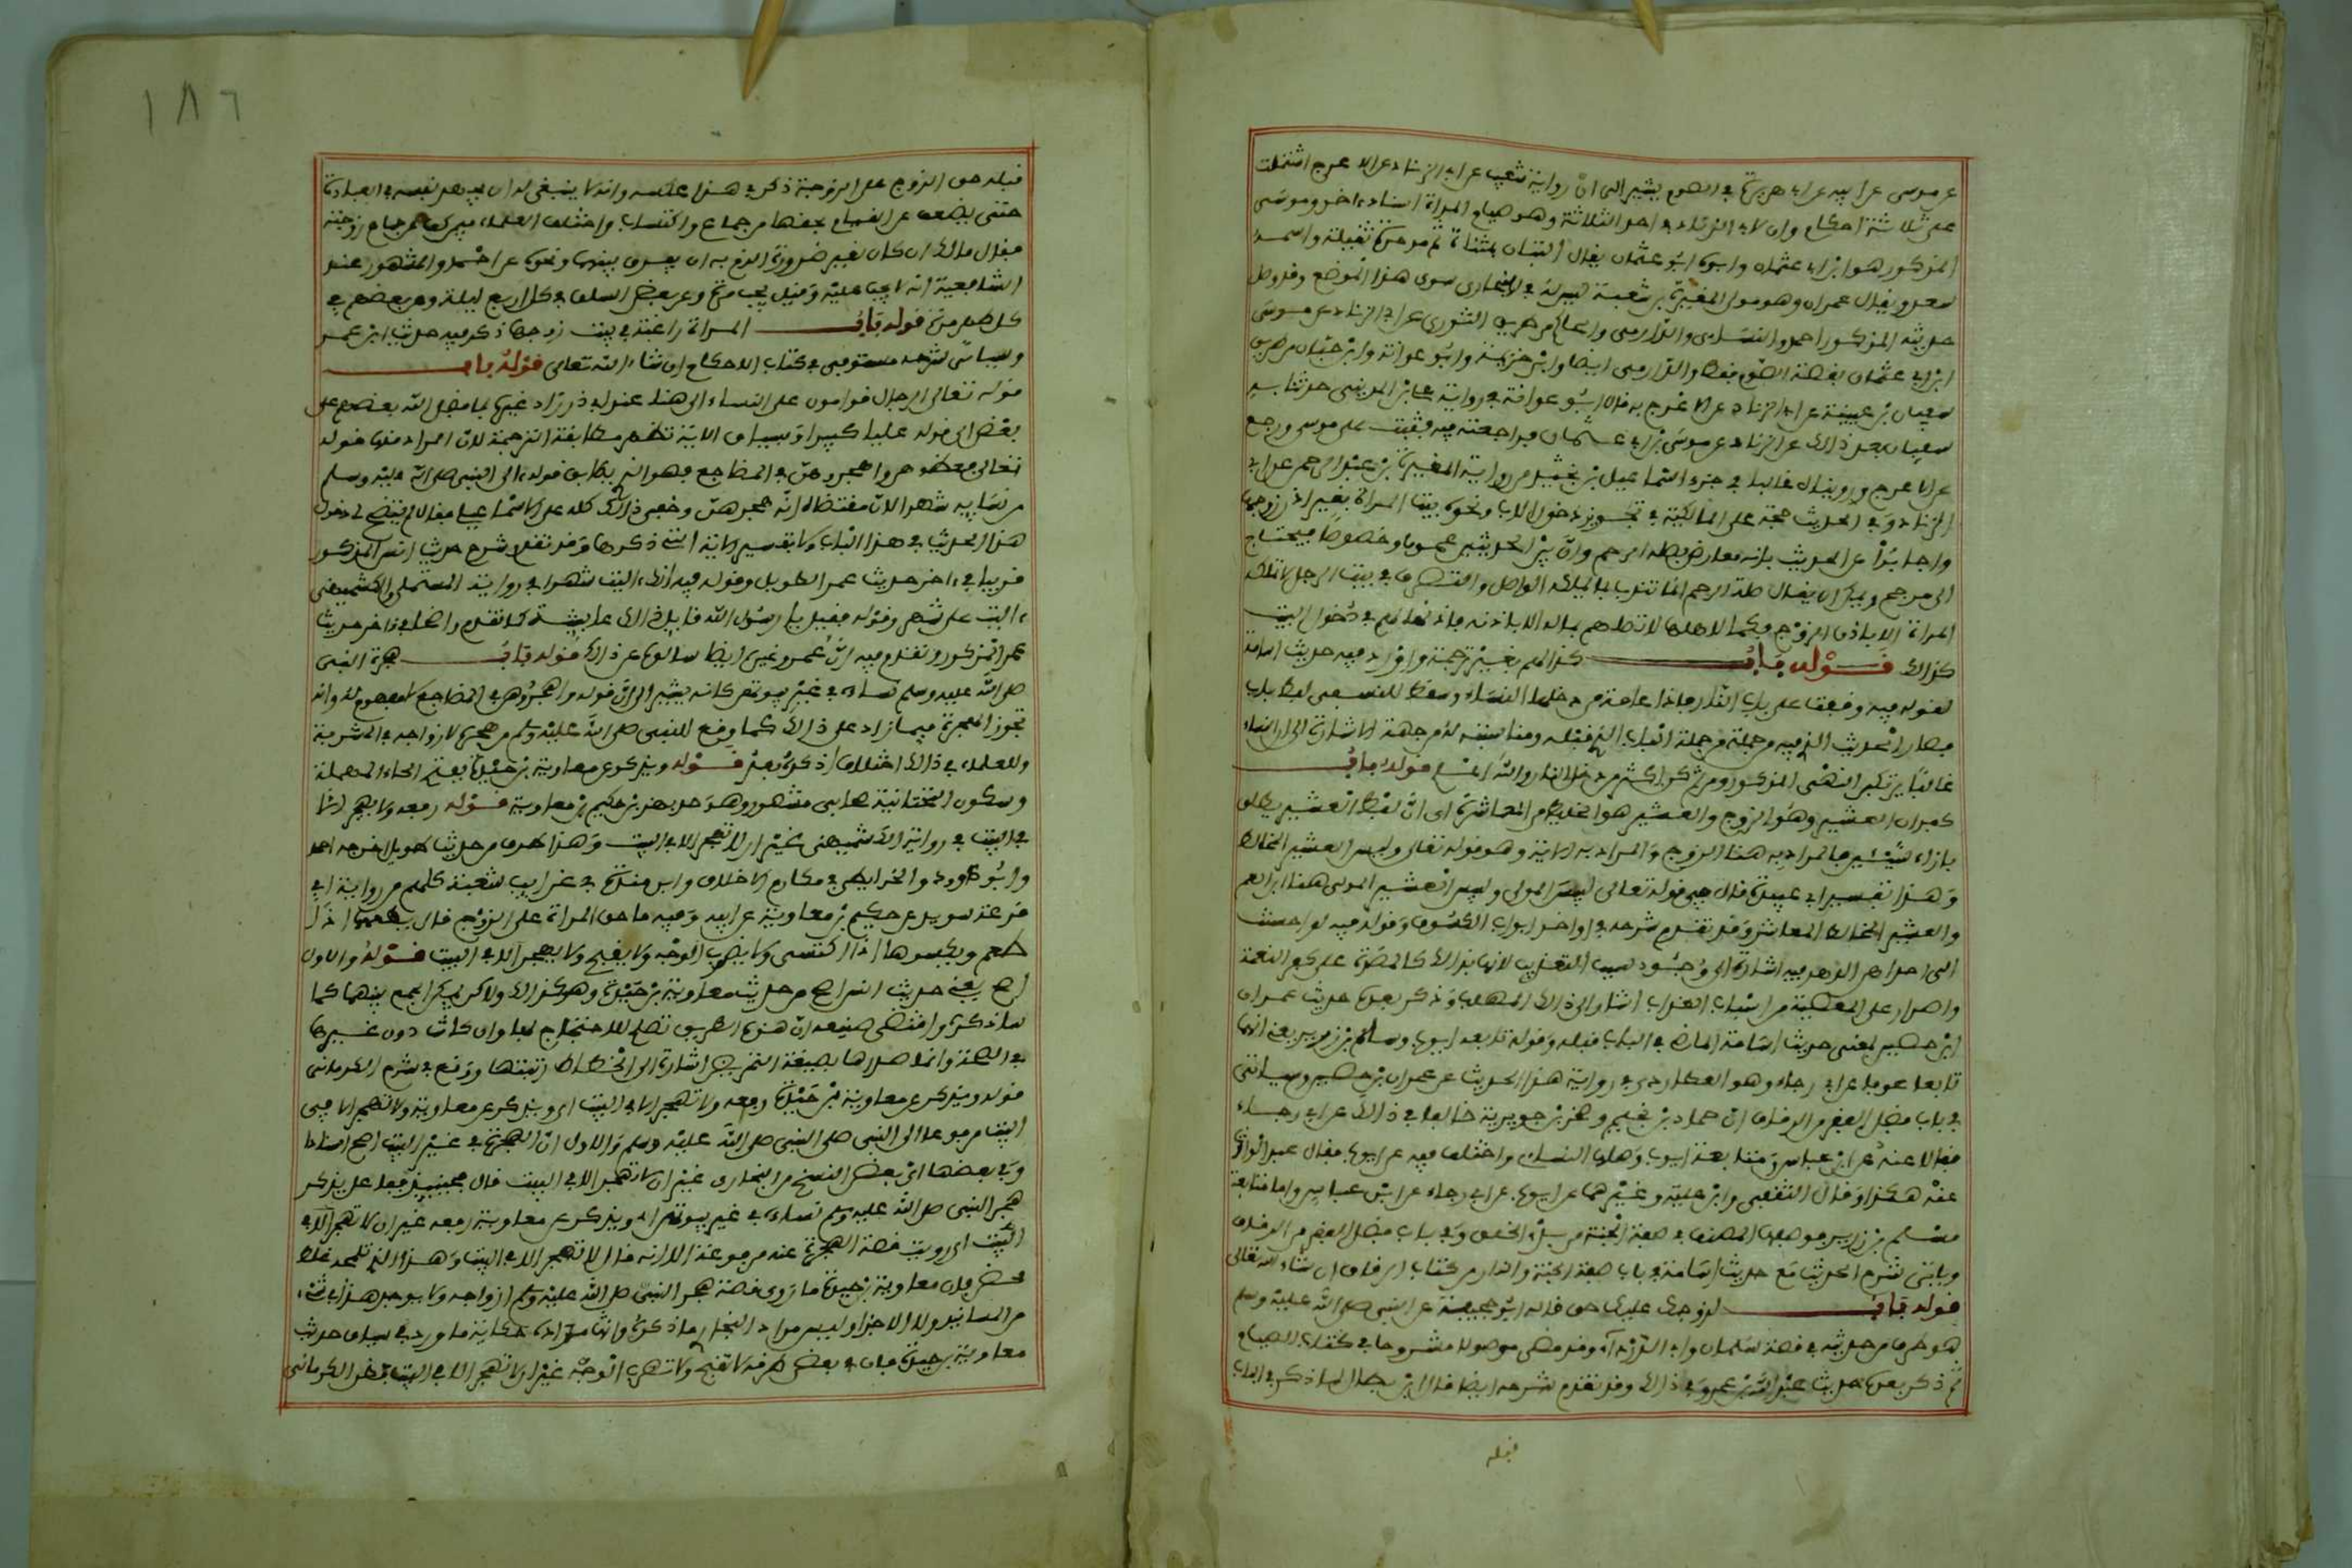 عن موسى عن ابيه عن ابي هريرة في الصوم يشير الى ان رواية شعيب عن ابي الزناد عن الاعرج اشتملت
على ثلاثة احكام وان لابي الزناد في احد الثلاثة وهو صيام المراة اسنادا اخر وموسى
المذكور هو ابن ابي عثمان وابوه ابو عثمان يقال له التبان بمثناة ثم موحدة ثقيلة واسمه
سعد ويقال عمران وهو مولى المغيرة بن شعبة ليس له في البخاري سوى هذا الموضع وقد وصل
حديثه المذكور احمد والنساءى والدارمى والحاكم من طريق الثورى عن ابي الزناد عن موسى
ابن ابي عثمان بقصة الصوم فقط والدارمى ايضا وابن خزيمة وابو عوانة وابن حبان من طريق
سفيان بن عيينة عن ابي الزناد عن الاعرج به قال ابو عوانة في رواية على بن المدينى حدثنا به
سفيان بعد ذلك عن ابي الزناد عن موسى بن ابي عثمان فراجعته فيه فثبت على موسى ورجع
عن الاعرج ورويناه عاليا في جزء اسماعيل بن نجيد من رواية المغيرة بن عبد الرحمن عن ابي
الزناد وفي الحديث حجة على المالكية في تجويز دخول الاب ونحوه بيت المراة بغير اذن زوجها
واجابوا عن الحديث بانه معارض بصلة الرحم وان بين الحديثين عموما وخصوصا فيحتاج
الى مرجح ويمكن ان يقال صلة الرحم انما تندب بما يملكه الواصل والتصرف في بيت الرجل لا تملكه
المراة الا باذن الزوج فكما لاهلها لا تصلهم بماله الا باذنه فاذنها لهم في دخول البيت
كذلك قوله باب كذا لهم بغير ترجمة واورد فيه حديث اسامة
لقوله فيه وقفت على باب النار فاذا عامة من دخلها النساء وسقط للنسفى لفظ باب
فصار الحديث الذي فيه من جملة الباب الذي قبله ومناسبته له من جهة الاشارة الى ان النساء
غالبا يرتكبن النهى المذكور ومن ثم كن اكثر من دخل النار والله اعلم قوله باب
كفران العشير وهو الزوج والعشير هو الخليط من المعاشرة اى ان لفظ العشير يطلق
بازاء شيئين فالمراد به هنا الزوج والمراد به في الاية وهو قوله تعالى ولبيس العشير المخالط
وهذا تفسير ابي عبيدة قال في قوله تعالى لبيس المولى ولبيس العشير المولى هنا ابن العم
والعشير المخالط المعاشر وقد تقدم شرحه في اواخر ابواب الكسوف وقوله فيه لو احسنت
الى احداهن الدهر فيه اشارة الى وجود سبب التعذيب لانها بذلك كالمصرة على كفر النعمة
والاصرار على المعصية من اسباب العذاب اشار الى ذلك المهلب وذكر بعده حديث عمران
ابن حصين بمعنى حديث اسامة الماضي في الباب قبله وقوله تابعه ايوب وسلم بن زرير يعنى انهما
تابعا عوفا عن ابي رجاء وهو العطاردى في رواية هذا الحديث عن عمران بن حصين وسياتى
في باب فضل الفقر من الرقاق ان حماد بن نجيح وصخر بن جويرية خالفا في ذلك عن ابي رجاء
فقالا عنه عن ابن عباس ومتابعة ايوب وصلها النساءى واختلف فيه عن ايوب فقال عبد الوارث
عنه هكذا وقال الثقفى وابن علية وغيرهما عن ايوب عن ابي رجاء عن ابن عباس واما متابعة
سلم بن زرير فوصلها المصنف في صفة الجنة من بدء الخلق وفي باب فضل الفقر من الرقاق
وياتى شرح الحديث مع حديث اسامة في باب صفة الجنة والنار من كتاب الرقاق ان شاء الله تعالى
قوله باب لزوجك عليك حق قاله ابو جحيفة عن النبي صلى الله عليه وسلم
هو طرف من حديثه في قصة سلمان وابي الدرداء وقد مضى موصولا مشروحا في كتاب الصيام
ثم ذكر بعده حديث عبد الله بن عمرو في ذلك وقد تقدم شرحه ايضا قال ابن بطال لما ذكر في الباب
قبله
١٨٦
قبله حق الزوج على الزوجة ذكر في هذا عكسه وانه لا ينبغى له ان يجهد نفسه في العبادة
حتى يضعف عن القيام بحقها من جماع واكتساب واختلف العلماء فيمن كف عن جماع زوجته
فقال مالك ان كان لغير ضرورة الزم به ان يفرق بينهما ونحوه عن احمد والمشهور عند
الشافعية انه لا يجب عليه وقيل يجب مرة وعن بعض السلف في كل اربع ليلة وعن بعضهم في
كل طهر مرة قوله باب المراة راعية في بيت زوجها ذكر فيه حديث ابن عمر
وسياتى شرحه مستوفى في كتاب الاحكام ان شاء الله تعالى قوله باب
قوله تعالى الرجال قوامون على النساء الى هنا عند ابي ذر زاد غيره بما فضل الله بعضهم على
بعض الى قوله عليا كبيرا وبسياق الاية تظهر مطابقة الترجمة لان المراد منها قوله
تعالى فعظوهن واهجروهن في المضاجع فهو الذي يطابق قوله الى النبي صلى الله عليه وسلم
من نسايه شهرا لان مقتضاه انه هجرهن وخفي ذلك كله على الاسماعيلى فقال لم يتضح لي دخول
هذا الحديث في هذا الباب ولا تفسير الاية التي ذكرها وقد تقدم شرح حديث انس المذكور
قريبا في اخر حديث عمر الطويل وقوله فيه انك اليت شهرا في رواية المستملى والكشميهنى
اليت على شهر وقوله فقيل يا رسول الله قايل ذلك عايشة كما تقدم واضحا في اخر حديث
عمر المذكور وتقدم فيه ان عمر وغيره ايضا سالوه عن ذلك قوله باب هجرة النبى
صلى الله عليه وسلم نساءه في غير بيوتهن كانه يشير الى ان قوله واهجروهن في المضاجع لا مفهوم له وانه
تجوز الهجرة فيما زاد على ذلك كما وقع للنبى صلى الله عليه وسلم من هجره لازواجه في المشربة
وللعلماء في ذلك اختلاف اذكره بعد قوله ويذكر عن معاوية بن حيدة بفتح الحاء المهملة
وسكون التحتانية صحابى مشهور وهو جد بهز بن حكيم بن معاوية قوله رفعه ولا تهجر الا
في البيت في رواية الكشميهنى غير ان لا تهجر الا في البيت وهذا طرف من حديث طويل اخرجه احمد
وابو داوود والخرايطى في مكارم الاخلاق وابن مندة في غرايب شعبة كلهم من رواية ابي
قزعة سويد عن حكيم بن معاوية عن ابيه وفيه ما حق المراة على الزوج قال يطعمها اذا
طعم ويكسوها اذا اكتسى ولا يضرب الوجه ولا يقبح ولا يهجر الا في البيت قوله والاول
اصح يعني حديث انس اصح من حديث معاوية بن حيدة وهو كذلك ولاكن يمكن الجمع بينهما كما
ساذكره واقتضى صنيعه ان هذه الطريق تصلح للاحتجاج بها وان كانت دون غيرها
في الصحة وانما صدرها بصيغة التمريض اشارة الى انحطاط رتبتها ووقع في شرح الكرمانى
قوله ويذكر عن معاوية بن حيدة رفعه ولا تهجر الا في البيت اي ويذكر عن معاوية ولا تهجر الا في
البيت مرفوعا الى النبى صلى الله عليه وسلم والاول ان الهجرة في غير البيت اصح اسنادا
وفي بعضها اى بعض النسخ من البخارى غير ان لا تهجر الا في البيت قال فحينئذ ففاعل يذكر
هجر النبى صلى الله عليه وسلم نساءه في غير بيوتهن اي ويذكر عن معاوية رفعه غير ان لا تهجر الا في
البيت اى رويت قصة الهجرة عنه مرفوعة الا انه قال لا تهجر الا في البيت وهذا الذي تلمحه غلط
محض فان معاوية بن حيدة ما روى قصة هجر النبى صلى الله عليه وسلم ازواجه ولا يوجد هذا في شيء
من المسانيد ولا الاجزاء وليس مراد البخاري ما ذكره وانما مراده حكاية ما ورد في سياق حديث
معاوية بن حيدة فان في بعض طرقه لا تقبح ولا تضرب الوجه غير ان لا تهجر الا في البيت فظن الكرمانى